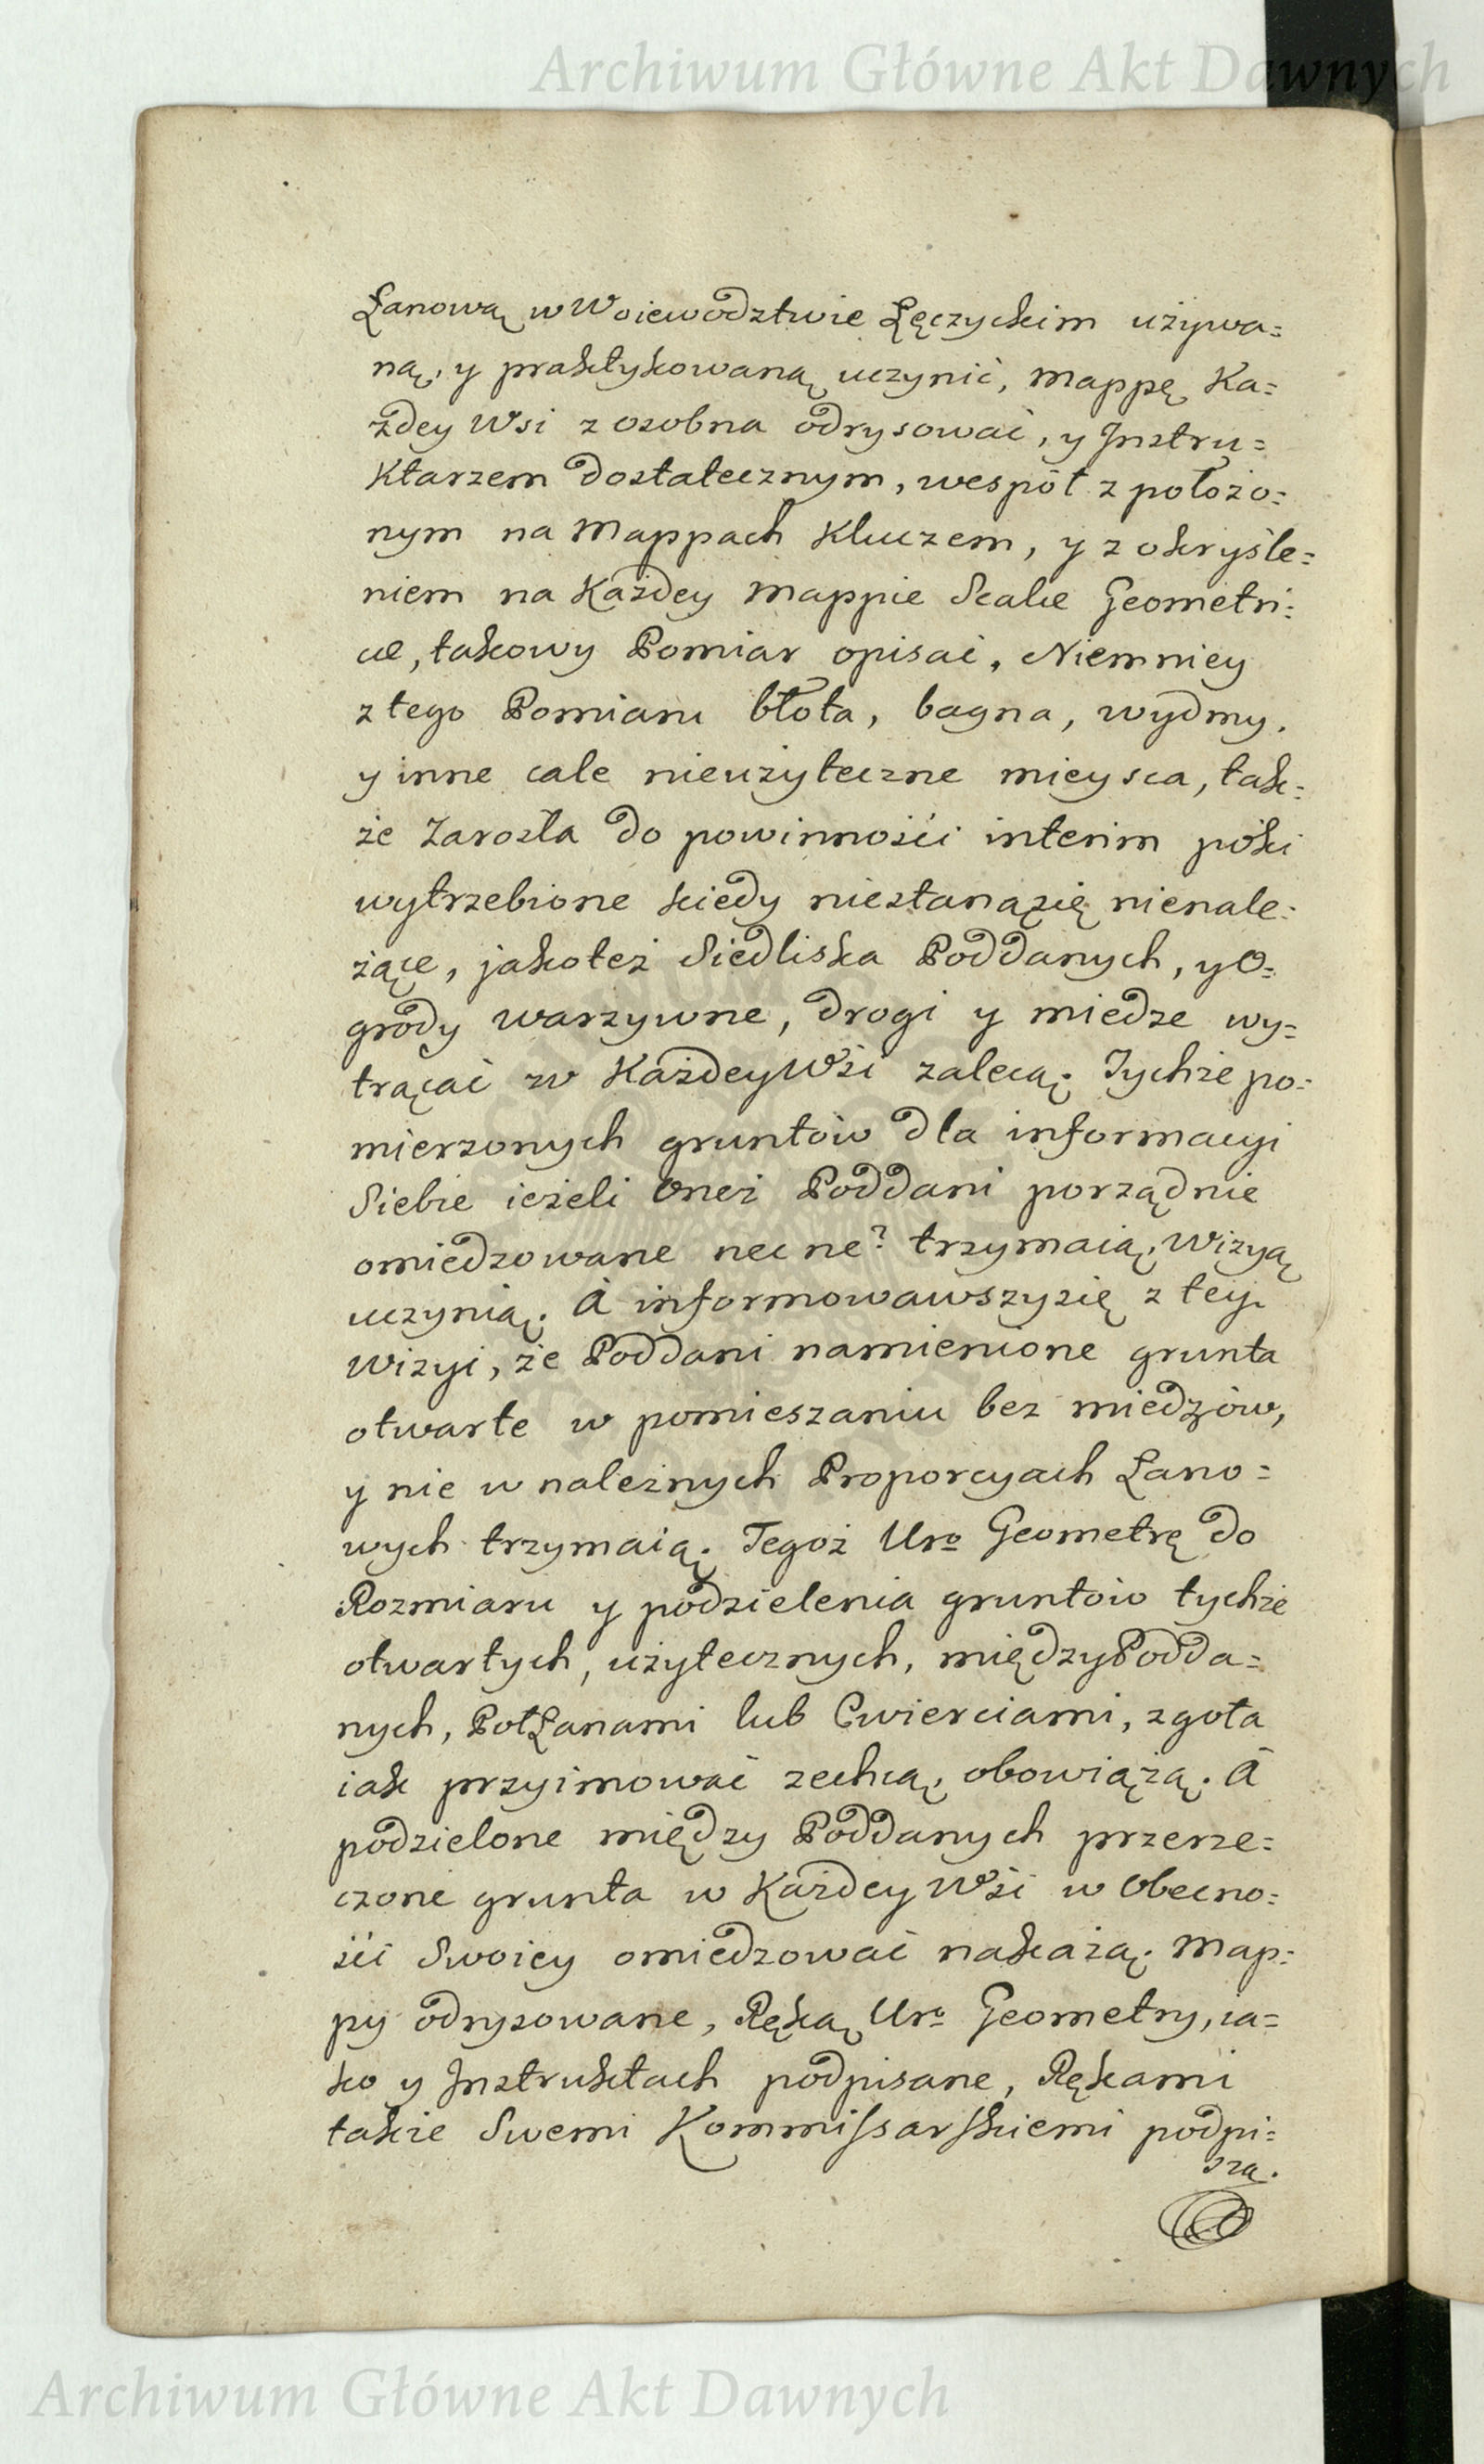 Archiwum Główne Akt Dawnych
Łanową w Woiewodztwie Łęczyckim używa=
ną, y praktykowaną uczynić, mappę Ka=
żdey Wsi z osobna odrysować, y Jnstru=
Ktarzem dostatecznym, wespół z położo=
nym na Mappach Kluczem, y z okryśle=
niem na Każdey Mappie Scalæ Geometri=
cæ, takowy Pomiar opisać, Niemniey
z tego Pomiaru błota, bagna, wydmy,
y inne cale nieużyteczne mieysca, tak=
że Zarosła do powinnośći interim póki
wytrzebione kiedy niestanąsię nienale=
żące, jakoteż Siedliska Poddanych, y O=
grody warzywne, drogi y miedze wy=
trącać w Każdey Wśi zalecą. Tychże po=
mierzonych gruntów dla informacyi
Siebie ieżeli Oneż Poddani porządnie
omiedzowane nec ne? trzymaią, Wizyą
uczynią. A informowawszysię z tey
Wizyi, że Poddani namienione grunta
otwarte w pomieszaniu bez miedzów,
y nie w należnych Proporcyach Łano=
wych trzymaią. Tegoż Uro Geometrę do
Rozmiaru y podzielenia gruntów tychże
otwartych, użytecznych, między Podda=
nych, PołŁanami lub Cwierciami, zgoła
iak przyimować zechcą, obowiążą. A
podzielone między Poddanych przerze=
czone grunta w Każdey Wśi w Obecno=
śći Swoiey omiedzować nakażą. Map=
py odrysowane, Ręką Uro Geometry, ia=
ko y Jnstruktach podpisane, Rękami
także Swemi Kommissarskiemi podpi=
szą.
Archiwum Główne Akt Dawnych